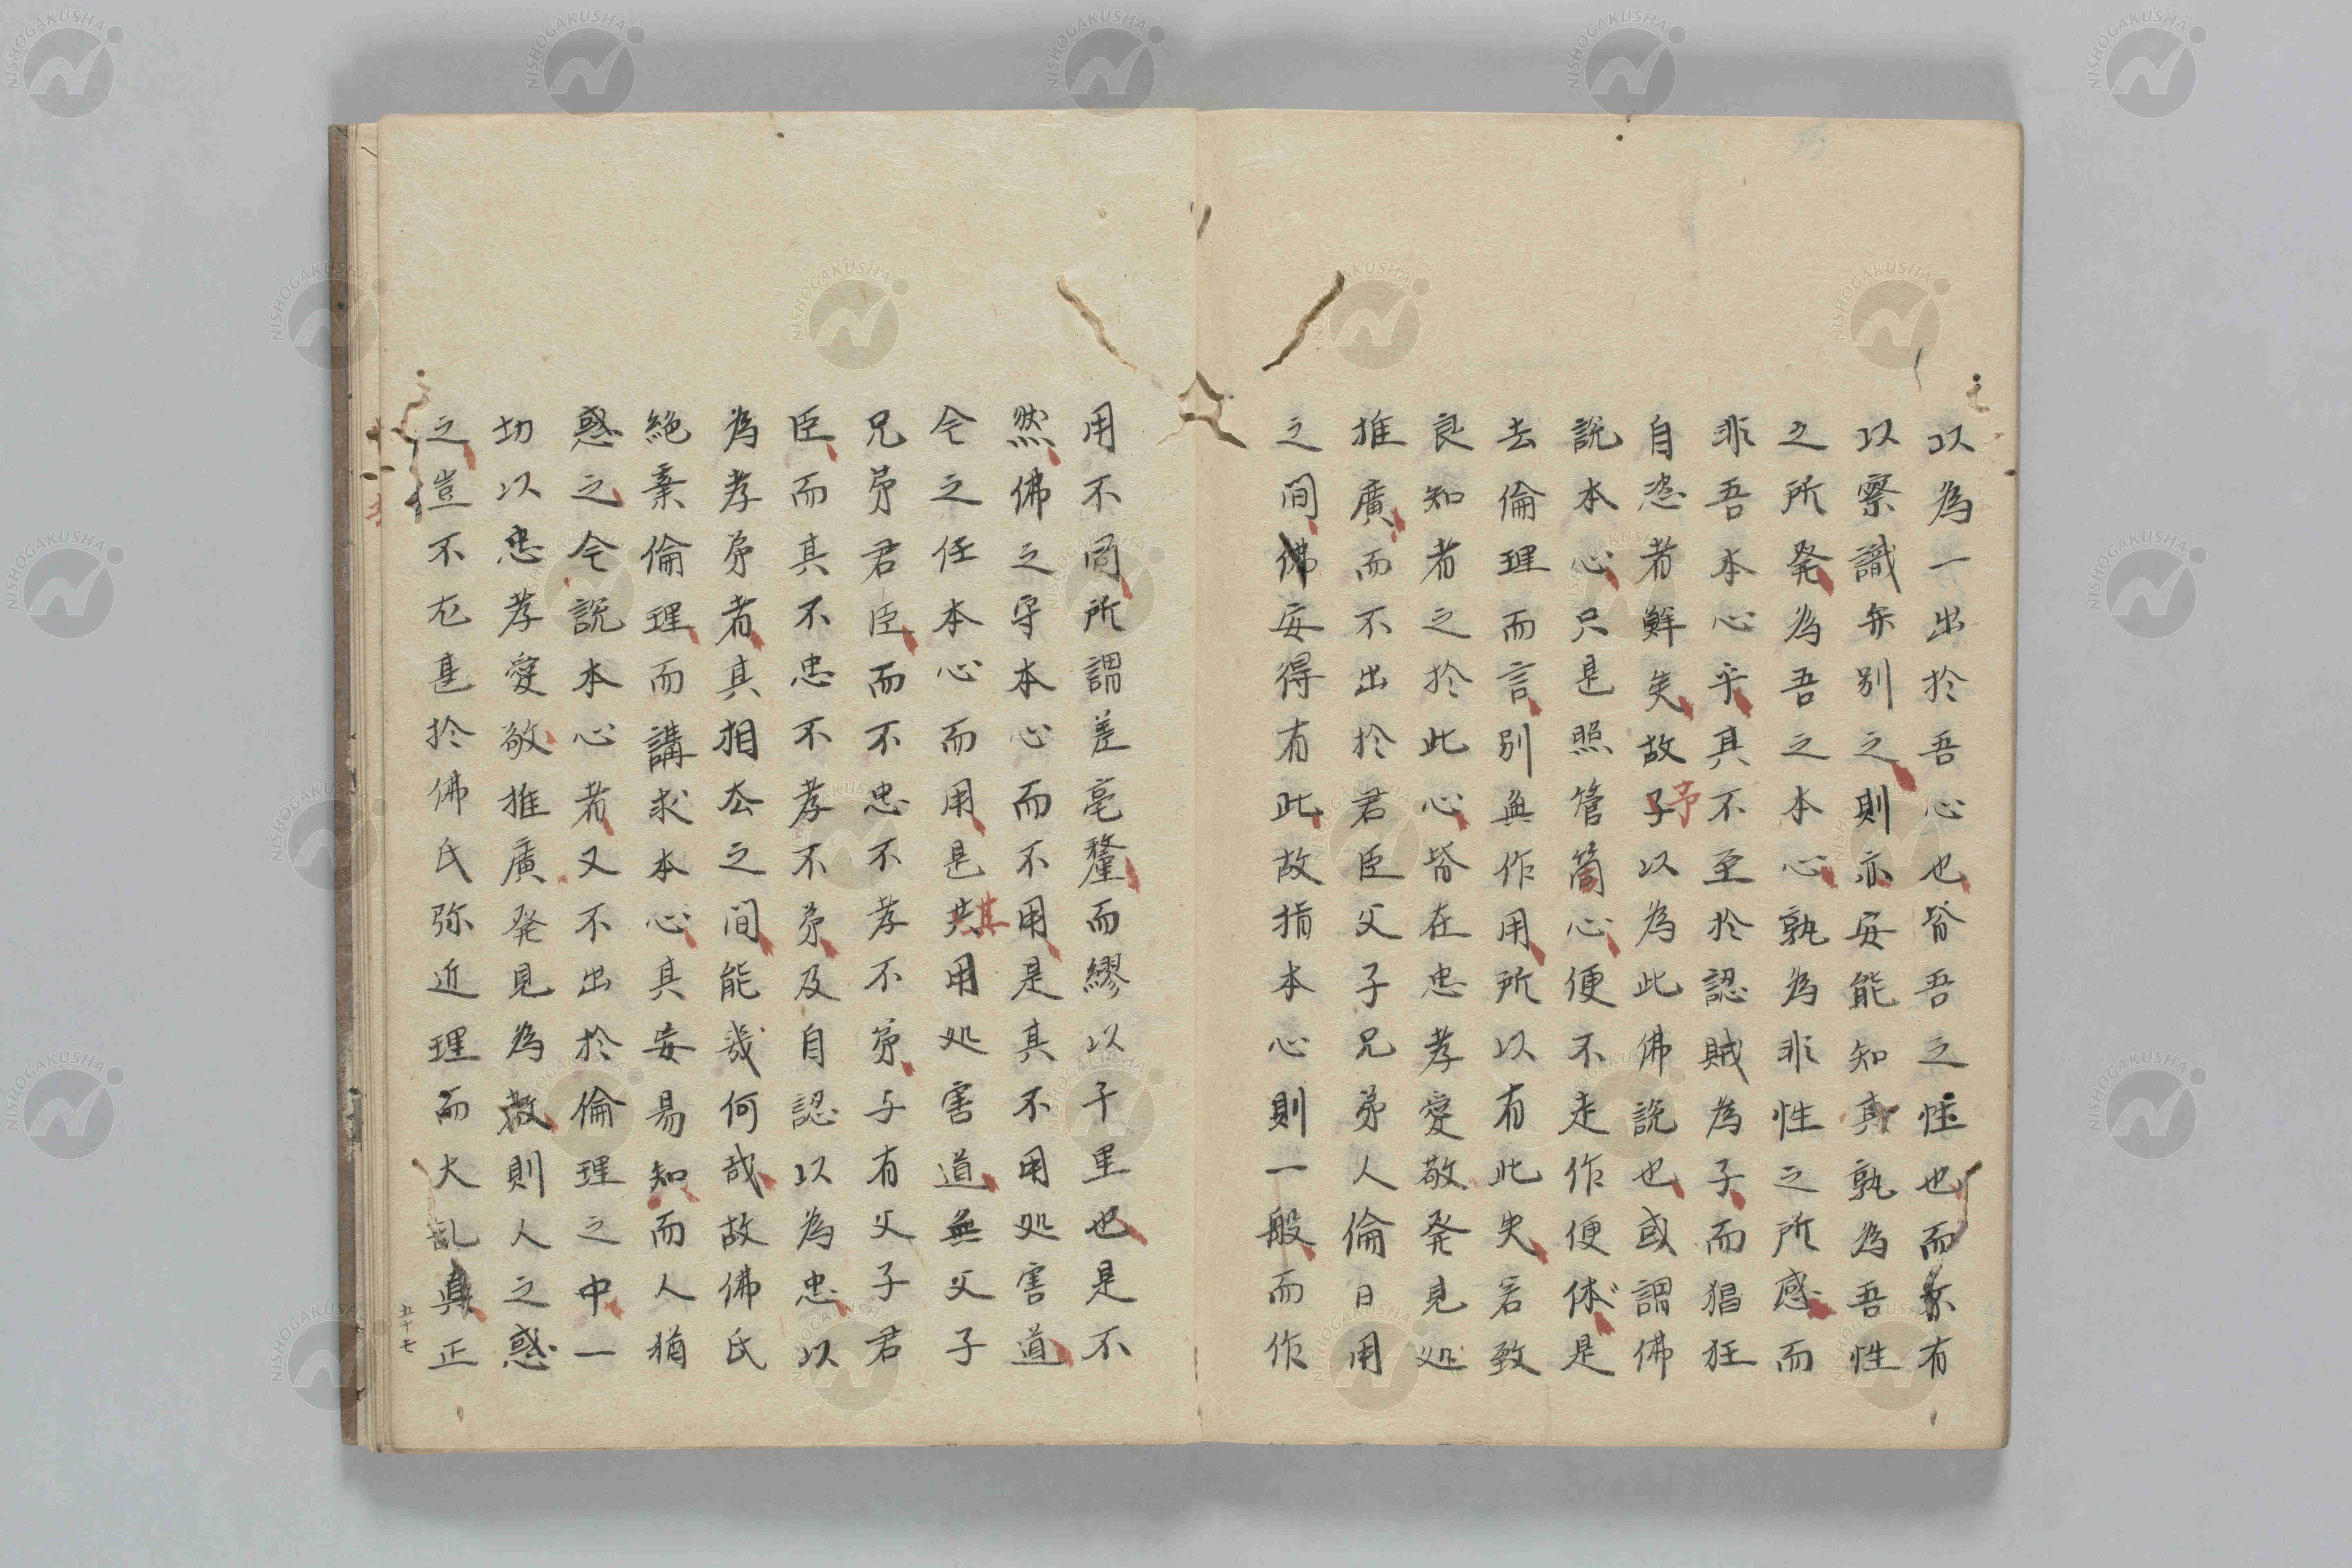 以為一出於吾心也皆吾之性也而亦有
以察識弁別之則亦安能知真孰為吾性
之所発為吾之本心孰為非性之所感而
非吾本心乎其不至於認賊為子而猖狂
自恣者鮮矣故子予以為此佛說也或謂佛
說本心只是照管箇心便不走作便休是
去倫理而言別無作用所以有此失若致
良知者之於此心皆在忠孝愛敬発見処
推廣而不出於君臣父子兄弟人倫日用
之間佛安得有此故指本心則一般而作
用不同所謂差毫釐而繆以千里也是不
然佛之守本心而不用是其不用処害道
今之任本心而用是共其用処害道無父子
兄弟君臣而不忠不孝不弟与有父子君
臣而其不忠不孝不弟及自認以為忠以
為孝弟者其相去之間能幾何哉故佛氏
絶棄倫理而講求本心其妄易知而人猶
惑之今説本心者又不出於倫理之中一
切以忠孝愛敬推廣発見為教則人之惑
之豈不尤甚於佛氏弥近理而大乱真正
五十七
NISHOGAKUSHA